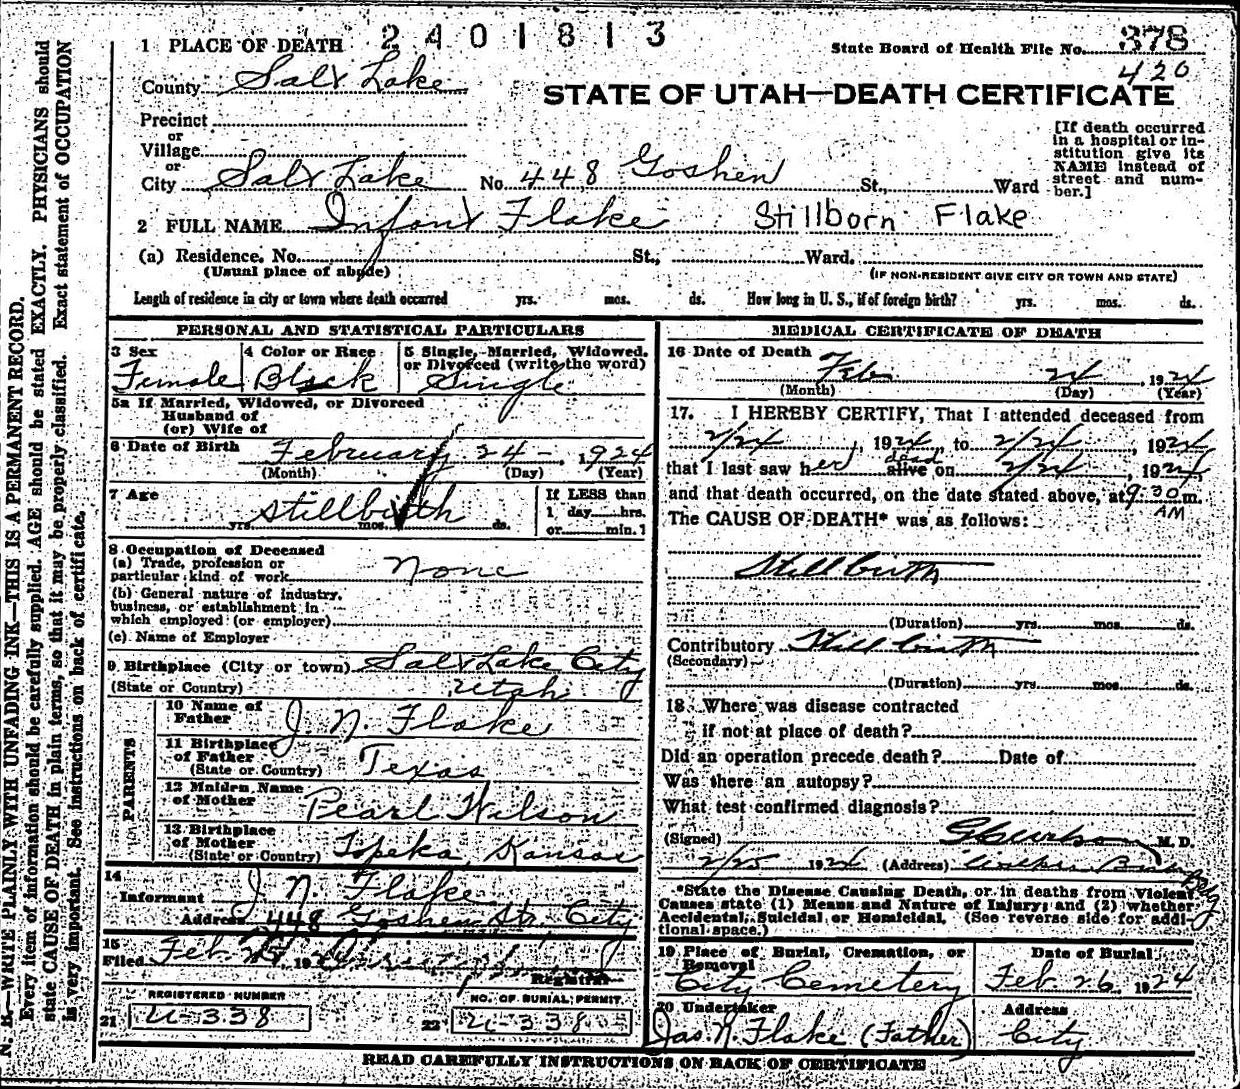 2401813
1 PLACE OF DEATH
State Board of Health File No. 378
420
County Salt Lake
STATE OF UTAH—DEATH CERTIFICATE
Precinct
or
Village
or
City Salt Lake No. 448 Goshen St., Ward
[If death occurred in a hospital or institution give its NAME instead of street and number.]
2 FULL NAME Infant Flake Stillborn Flake
(a) Residence. No. St., Ward.
(Usual place of abode) (IF NON-RESIDENT GIVE CITY OR TOWN AND STATE)
Length of residence in city or town where death occurred yrs. mos. ds. How long in U. S., if of foreign birth? yrs. mos. ds.
PERSONAL AND STATISTICAL PARTICULARS
3 Sex Female
4 Color or Race Black
5 Single, Married, Widowed, or Divorced (write the word) Single
5a If Married, Widowed, or Divorced
Husband of
(or) Wife of
6 Date of Birth February 24 - 1924
(Month) (Day) (Year)
7 Age stillbirth
yrs. mos. ds.
If LESS than
1 day hrs.
or min.?
8 Occupation of Deceased
(a) Trade, profession or
particular kind of work None
(b) General nature of industry,
business, or establishment in
which employed (or employer)
(c) Name of Employer
9 Birthplace (City or town) Salt Lake City
(State or Country) Utah
PARENTS
10 Name of Father J. N. Flake
11 Birthplace of Father
(State or Country) Texas
12 Maiden Name of Mother Pearl Wilson
13 Birthplace of Mother
(State or Country) Topeka, Kansas
14
Informant J. N. Flake
Address 448 Goshen Str. City
15
Filed Feb. 192
Registrar
REGISTERED NUMBER
21 U-338
NO. OF BURIAL PERMIT
22 U-338
MEDICAL CERTIFICATE OF DEATH
16 Date of Death Feb 24, 1924
(Month) (Day) (Year)
17. I HEREBY CERTIFY, That I attended deceased from
2/24, 1924, to 2/24, 1924
that I last saw her alive dead on 2/24, 1924,
and that death occurred, on the date stated above, at 9:30 m.
AM
The CAUSE OF DEATH* was as follows:
Stillbirth
(Duration) yrs. mos. ds.
Contributory Stillbirth
(Secondary)
(Duration) yrs. mos. ds.
18. Where was disease contracted
if not at place of death?
Did an operation precede death? Date of
Was there an autopsy?
What test confirmed diagnosis?
(Signed) M. D.
2/25 1924 (Address) Bldg
*State the Disease Causing Death, or in deaths from Violent
Causes state (1) Means and Nature of Injury; and (2) whether
Accidental, Suicidal or Homicidal. (See reverse side for addi-
tional space.)
19 Place of Burial, Cremation, or Removal
City Cemetery
Date of Burial
Feb. 26, 1924
20 Undertaker
Jas. N. Flake (Father)
Address
City
READ CAREFULLY INSTRUCTIONS ON BACK OF CERTIFICATE
N. B.—WRITE PLAINLY WITH UNFADING INK—THIS IS A PERMANENT RECORD.
Every item of information should be carefully supplied. AGE should be stated EXACTLY. PHYSICIANS should
state CAUSE OF DEATH in plain terms, so that it may be properly classified. Exact statement of OCCUPATION
is very important. See instructions on back of certificate.